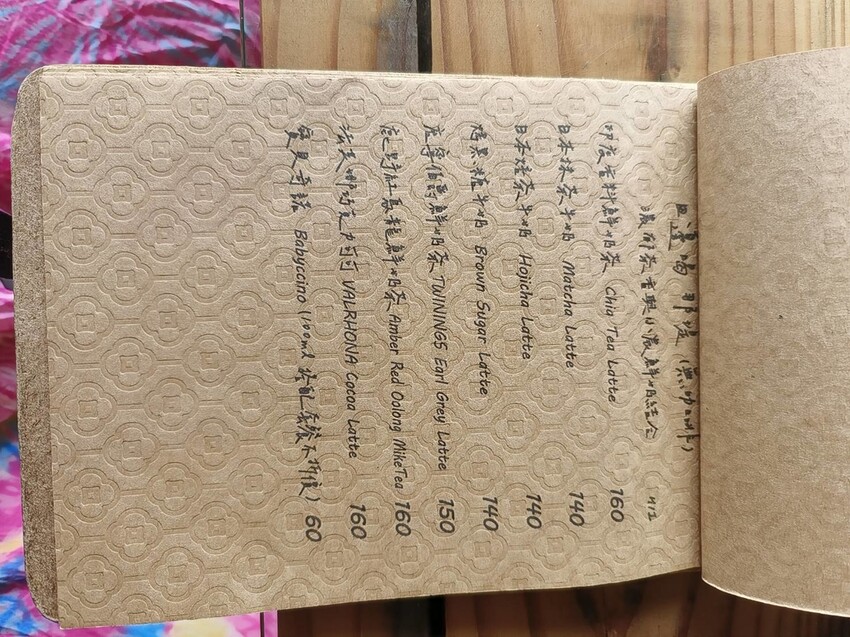 邊喝那堤(無咖啡)
濃郁茶香與小農鮮奶結合 H/I
印度香料鮮奶茶 Chia Tea Latte 160
日本抹茶牛奶 Matcha Latte 140
日本焙茶牛奶 Hojicha Latte 140
焙黑糖牛奶 Brown Sugar Latte 140
唐寧伯爵鮮奶茶 TWININGS Earl Grey Latte 150
鹿野紅烏龍鮮奶茶 Amber Red Oolong MikeTea 160
法芙娜巧克力可可 VALRHONA Cocoa Latte 160
寶貝奇諾 Babyccino (100ml 搭配套餐不折價) 60